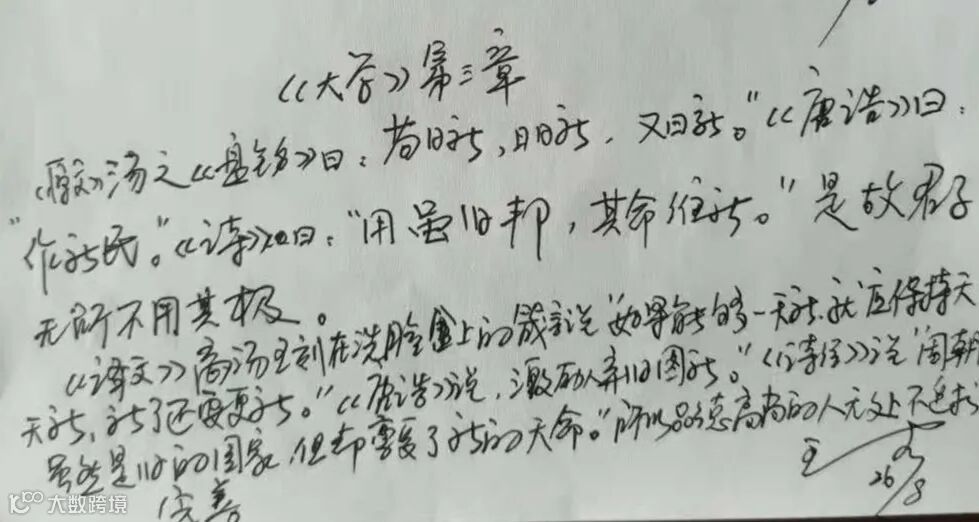 《大学》第三章
《原文》汤之《盘铭》曰：苟日新，日日新，又日新。”《唐诰》曰：
“作新民。”《诗》曰：“用虽旧邦，其命维新。”是故君子
无所不用其极。
《译文》商汤王刻在洗脸盆上的箴言说“如果能够一天新，就应保持天
天新，新了还要更新。”《唐诰》说，激励人弃旧图新。”《诗经》说“周朝
虽然是旧的国家，但却禀受了新的天命。”所以品德高尚的人无处不追求
完善
26/8
大数跨境